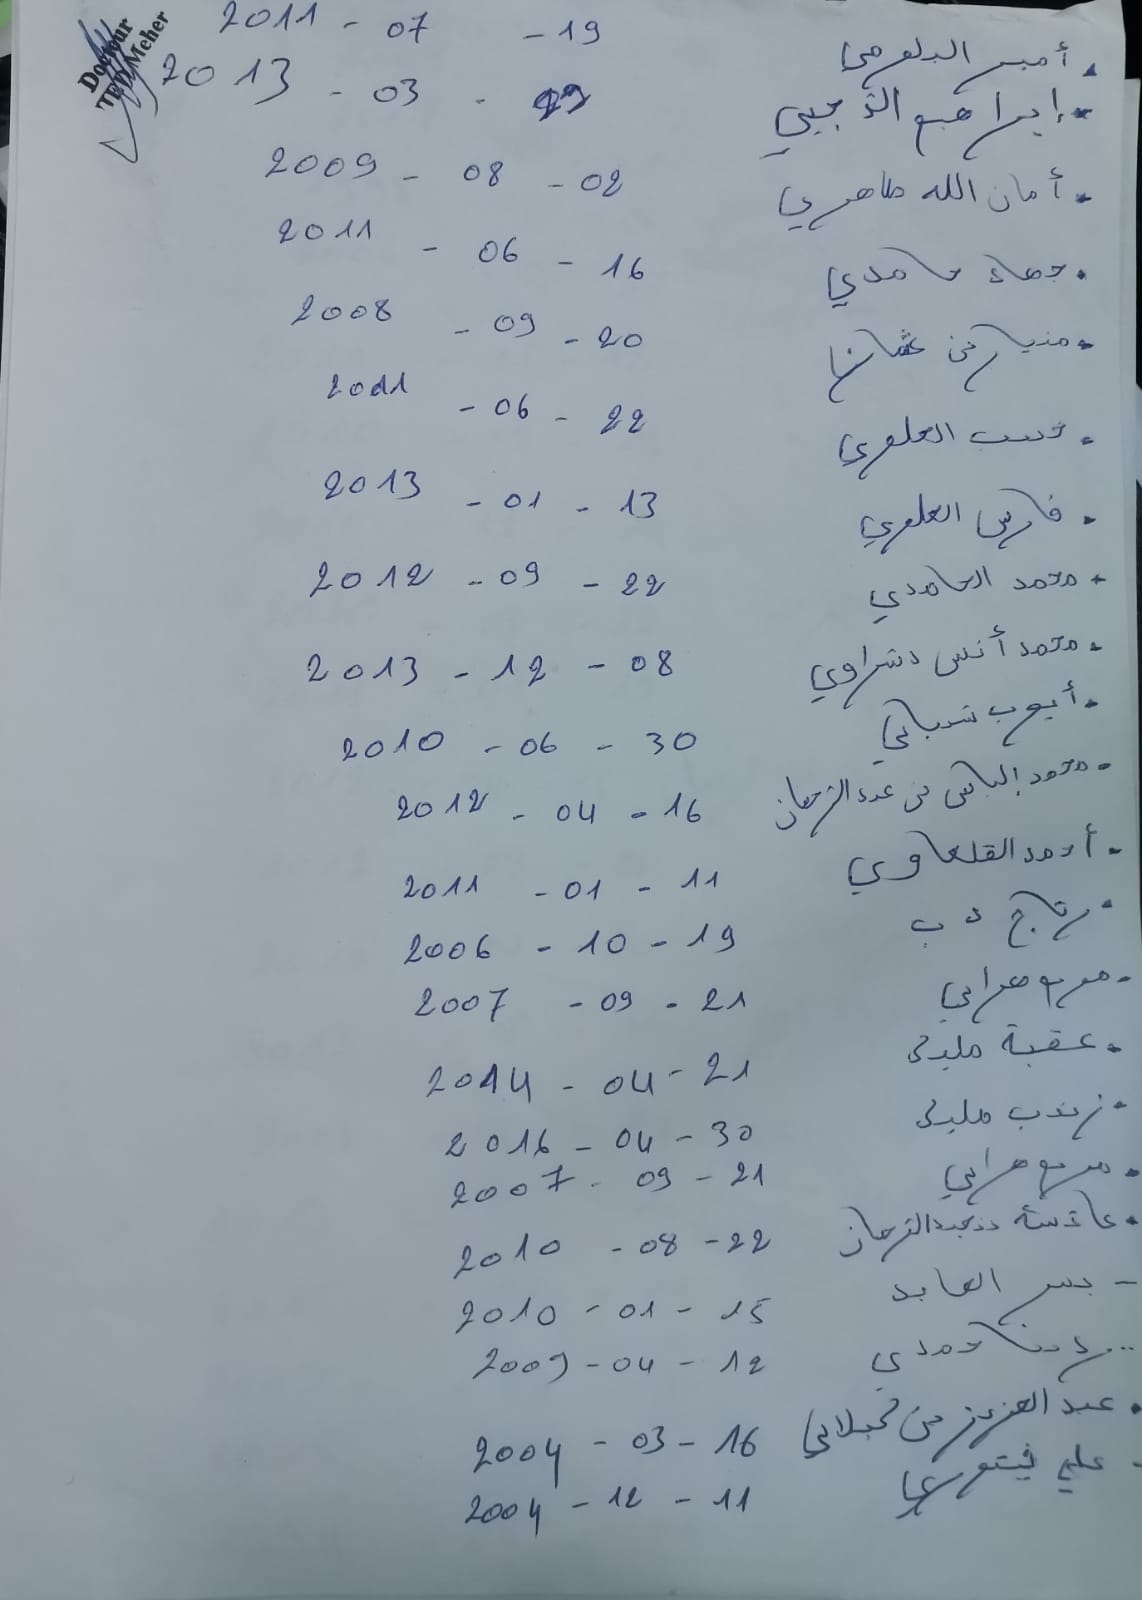 Docteur
Meher
أمير 19 - 07 - 2011
إبراهيم 03 - 2013
أمان الله طاهري 02 - 08 - 2009
جهاد حامدي 16 - 06 - 2011
20 - 09 - 2008
العلوي 22 - 06 - 2011
فارس العلوي 13 - 01 - 2013
محمد الحامدي 22 - 09 - 2012
محمد أنس 08 - 12 - 2013
أيوب 30 - 06 - 2010
محمد إلياس بن عبد الرحمان 16 - 04 - 2012
أحمد القلعاوي 11 - 01 - 2011
19 - 10 - 2006
مريم هرابي 21 - 09 - 2007
عقبة مليكي 21 - 04 - 2014
زينب مليكي 30 - 04 - 2016
مريم هرابي 21 - 09 - 2007
عائشة بن عبد الرحمان 22 - 08 - 2010
يسر العابد 15 - 01 - 2010
حمدي 12 - 04 - 2009
عبد العزيز بن 16 - 03 - 2004
علي فيتوري 11 - 12 - 2004